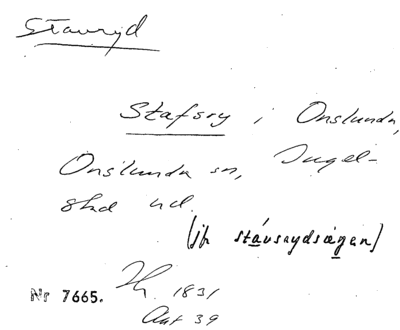 Stavryd
Stafsry i Onslunda,
Onslunda sn, Ingel-
stad hd.
(jfr stávsrydsägen)
Nr 7665.
1831
Akt 39